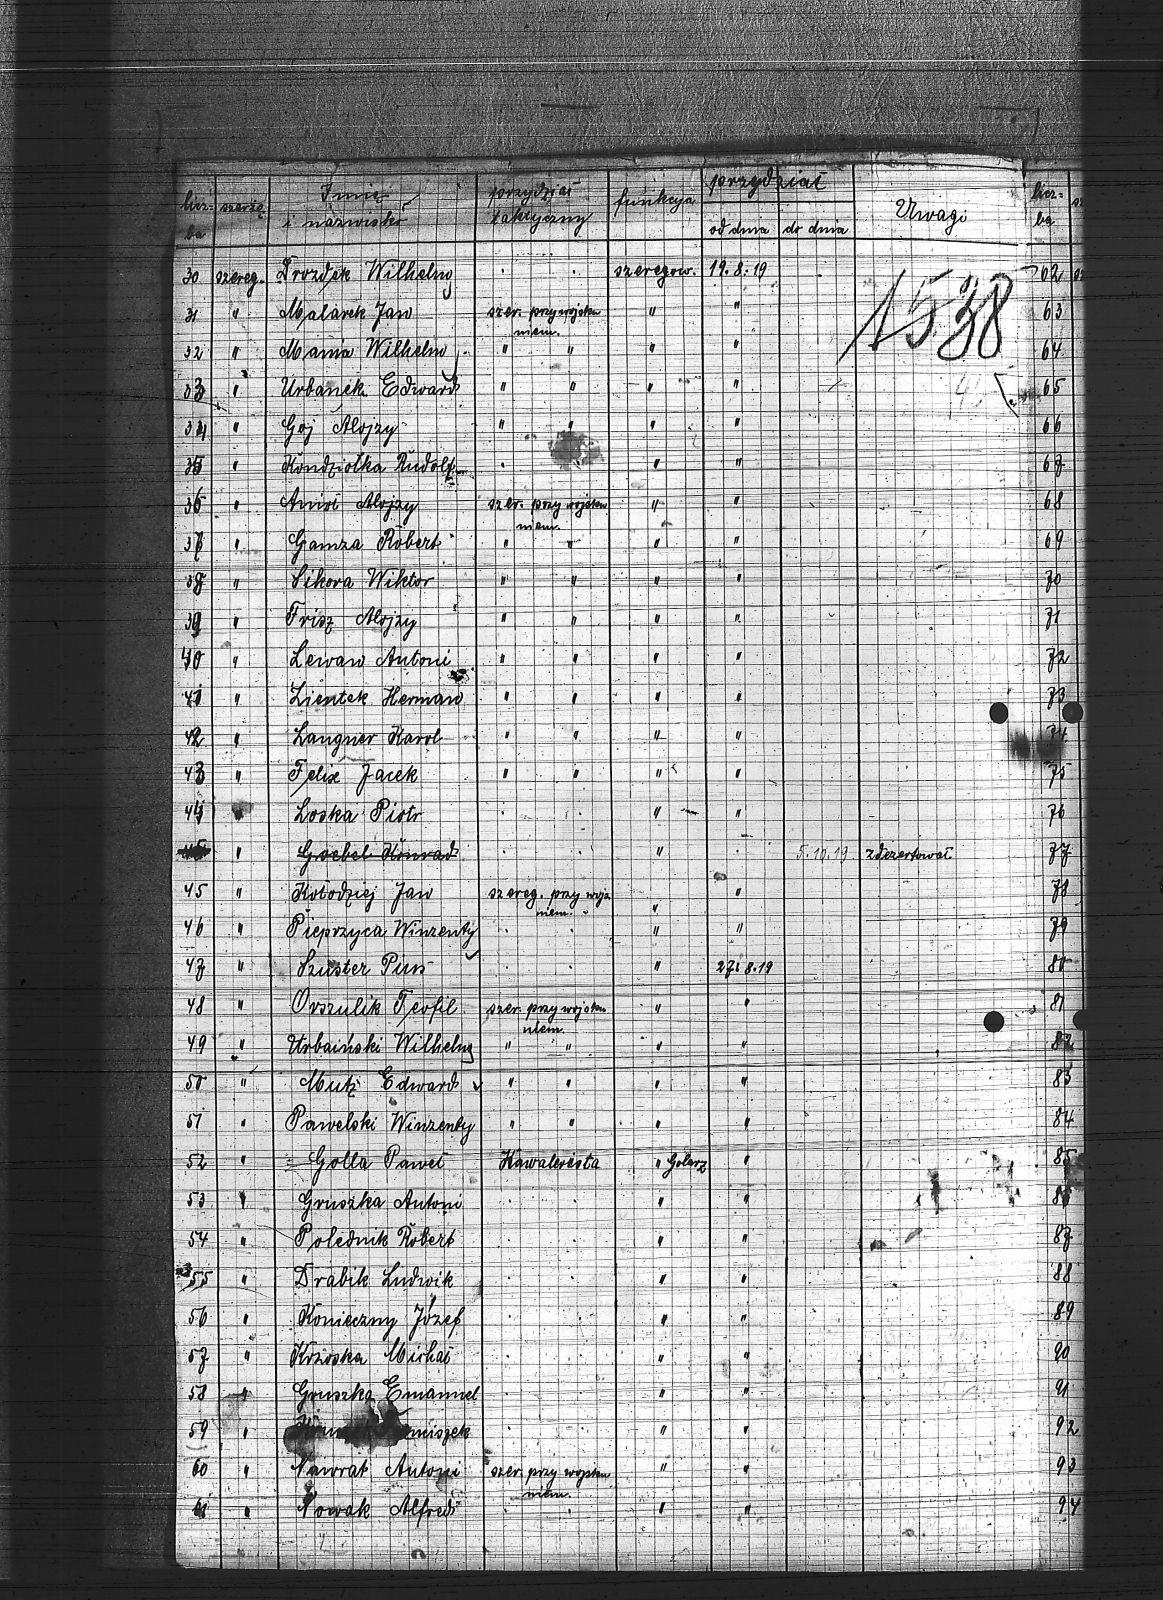 liczba szarżę Imię i nazwisko przydział taktyczny funkcja przydział od dnia do dnia Uwagi liczba
30 szereg. Drozdek Wilhelm · · szeregow. 19.8.19 62
1538
31 " Malarek Jan szer. przy wojsku niem. " " 63
32 " Mania Wilhelm " " " " 64
33 " Urbanek Edward " " " " 65
34 " Goj Alojzy " " " " 66
35 " Kondziołka Rudolf · " " 67
36 " Amot Alojzy szer. przy wojsku niem. " " 68
37 " Gamza Robert " " " " 69
38 " Sikora Wiktor " " " " 70
39 " Frisz Alojzy " " " " 71
40 " Lewan Antoni " " " " 72
41 " Zientek Herman " " " " 73
42 " Langner Karol " " " " 74
43 " Felix Jacek " " " " 75
44 " Loska Piotr · · " " 76
" Goebel Konrad · · " · 5.10.19 zdezertował 77
45 " Kołodziej Jan szereg. przy wojs. niem. " " 78
46 " Pieprzyca Winzenty · · " " 79
47 " Szuster Pius · · " 27.8.19 80
48 " Orszulik Teofil szer. przy wojsku niem. " " 81
49 " Urbański Wilhelm " " " " 82
50 " Mutz Edward " " " " 83
51 " Pawelski Winzenty " " " " 84
52 " Golla Paweł Kawalerista " Golarz " 85
53 " Gruszka Antoni · · " " 86
54 " Polednik Robert · · " " 87
55 " Drabik Ludwik · · " " 88
56 " Konieczny Józef · · " " 89
57 " Krzoska Michał · · " " 90
58 " Gruszka Emanuel · · " " 91
59 " · · " " 92
60 " Nawrat Antoni szer. przy wojsku niem. " " 93
61 " Nowak Alfred · · " " 94